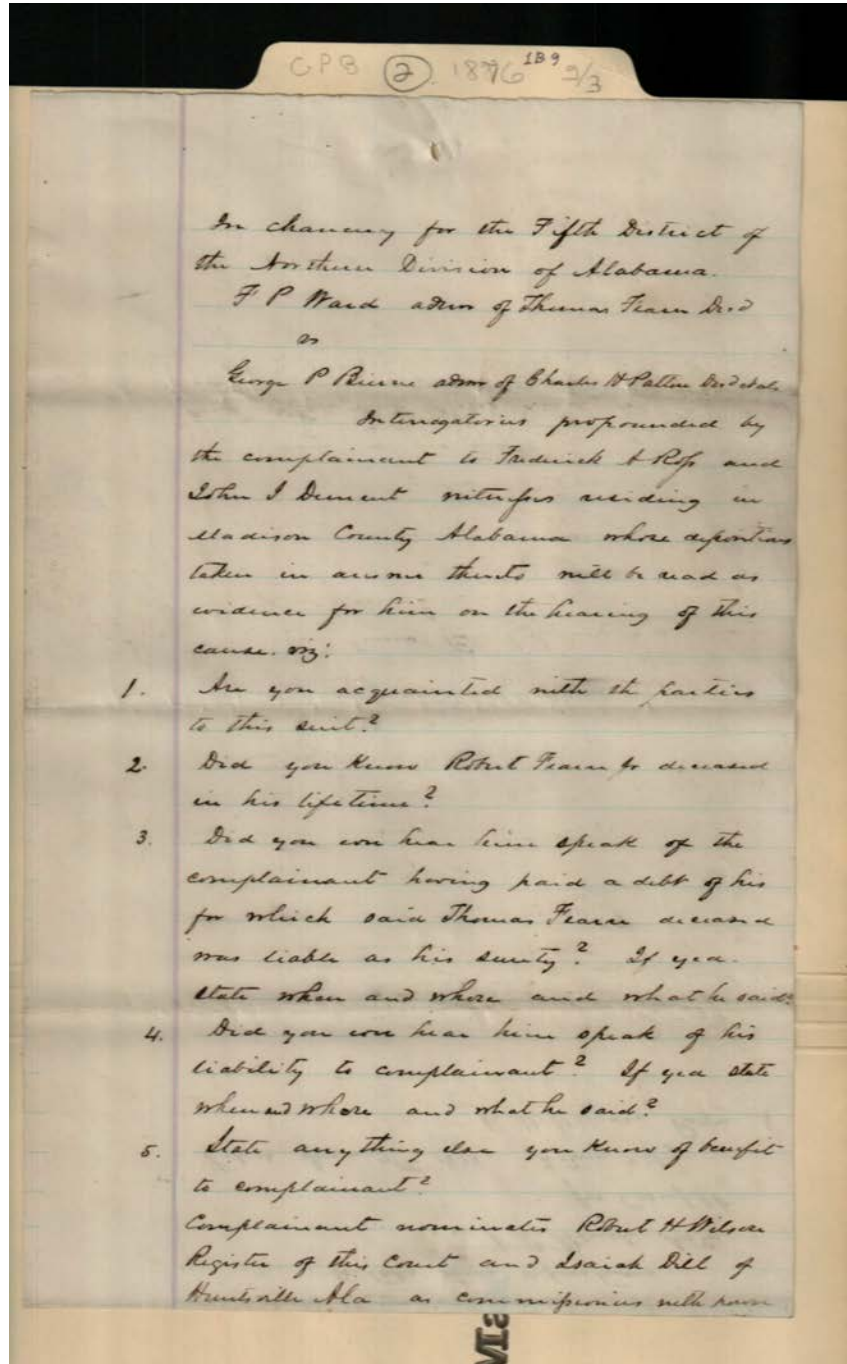 GPB (2) 1876 1B9 2/3
In chancery for the Fifth District of
the Northern Division of Alabama.
F P Ward admr of Thomas Fearn Decd
vs
George P Bierne admr of Charles H Patton Decd et als
Interrogatories propounded by
the complainant to Frederick A Ross and
John I Dement witnesses residing in
Madison County Alabama whose depositions
taken in answer thereto will be read as
evidence for him on the hearing of this
cause. viz:
1. Are you acquainted with the parties
to this suit?
2. Did you Know Robert Fearn jr deceased
in his lifetime?
3. Did you ever hear him speak of the
complainant having paid a debt of his
for which said Thomas Fearn deceased
was liable as his surety? If yea.
state when and where and what he said?
4. Did you ever hear him speak of his
liability to complainant? If yea state
when and where and what he said?
5. State anything else you Know of benefit
to complainant?
Complainant nominates Robert H Wilson
Register of this Court and Isaiah Dill of
Huntsville Ala as commissioners with power
Ma